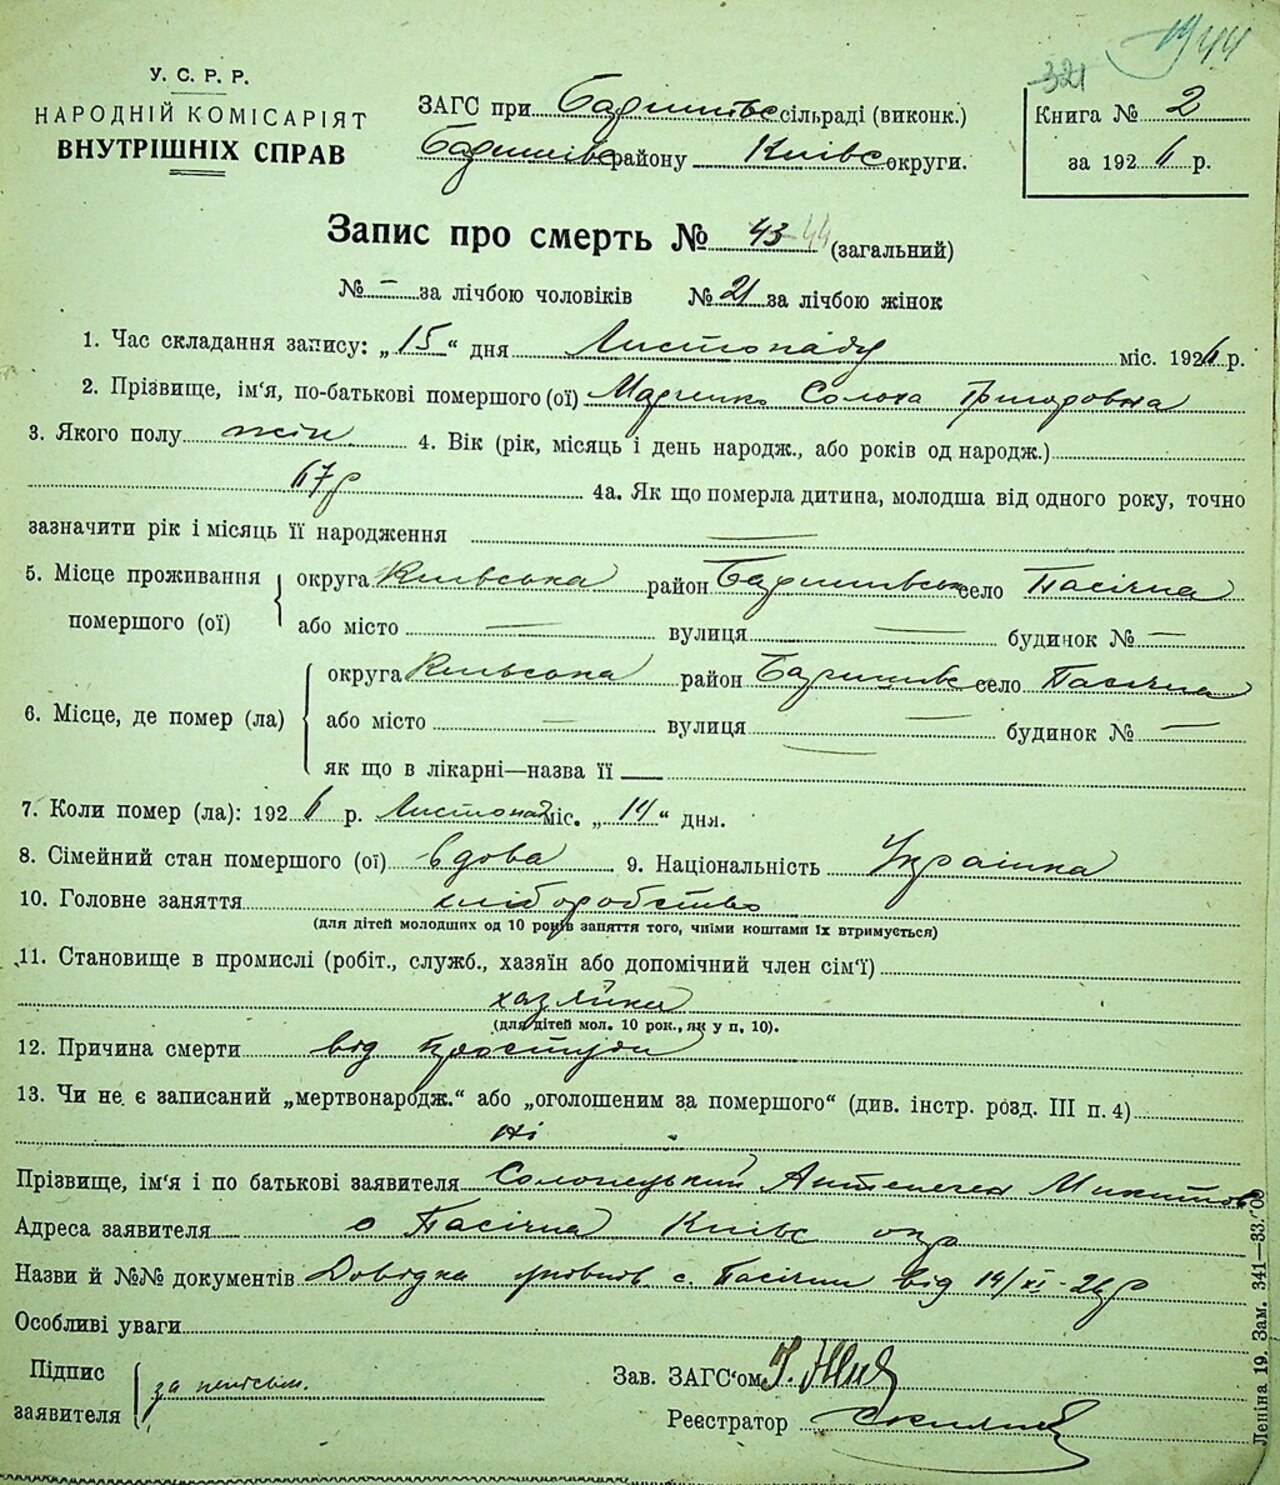 1944
321
У. С. Р. Р.
НАРОДНІЙ КОМІСАРІЯТ
ВНУТРІШНІХ СПРАВ
ЗАГС при Баришівс сільраді (виконк.)
Баришівс району Київс округи.
Книга № 2
за 1926 р.
Запис про смерть № 43 44 (загальний)
№ — за лічбою чоловіків № 21 за лічбою жінок
1. Час складання запису: „15“ дня Листопаду міс. 1926 р.
2. Прізвище, ім‘я, по-батькові помершого (ої) Марченко Солоха Григоровна
3. Якого полу жін 4. Вік (рік, місяць і день народж., або років од народж.)
67 р 4а. Як що померла дитина, молодша від одного року, точно
зазначити рік і місяць її народження —
5. Місце проживання помершого (ої) округа Київська район Баришівськ село Пасічна
або місто — вулиця — будинок № —
6. Місце, де помер (ла) округа Київська район Баришівс село Пасічна
або місто — вулиця — будинок № —
як що в лікарні—назва її —
7. Коли помер (ла): 1926 р. Листопад міс. „14“ дня.
8. Сімейний стан помершого (ої) вдова 9. Національність Українка
10. Головне заняття хліборобство
(для дітей молодших од 10 років заняття того, чиїми коштами їх втримується)
11. Становище в промислі (робіт., служб., хазяїн або допомічний член сім‘ї)
хазяйка
(для дітей мол. 10 рок., як у п. 10).
12. Причина смерти від простуди
13. Чи не є записаний „мертвонародж.“ або „оголошеним за помершого“ (див. інстр. розд. III п. 4)
Ні
Прізвище, ім‘я і по батькові заявителя Микитов
Адреса заявителя с Пасічна Київс окр
Назви й №№ документів Довідка с. Пасічни від 14/XI-26 р
Особливі уваги
Підпис заявителя за
Зав. ЗАГС‘ом
Реєстратор
Леніна 19. Зам. 341—33.